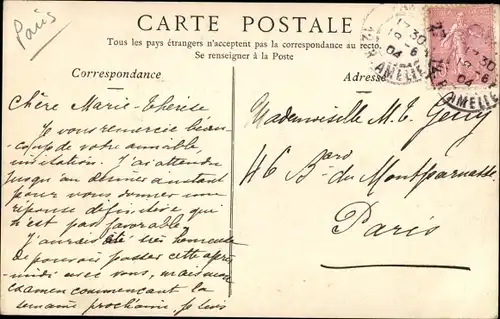 Paris
CARTE POSTALE
Tous les pays étrangers n'acceptent pas la correspondance au recto.
Se renseigner à la Poste
Correspondance
Adresse
17 30
8 - 6
04
R. AMELIE
17 30
8 - 6
04
R. AMELIE
Chère Marie-Thérèse
Je vous remercie beau-
coup de votre aimable
invitation. J'ai attendu
jusqu'au dernier instant
pour vous donner une
réponse définitive qui
n'est pas favorable.
J'aurais été très heureuse
de pouvoir passer cette après
midi avec vous, mais mon
examen commençant la
semaine prochaine je suis
Mademoiselle M. T.
46 Bard du Montparnasse
Paris